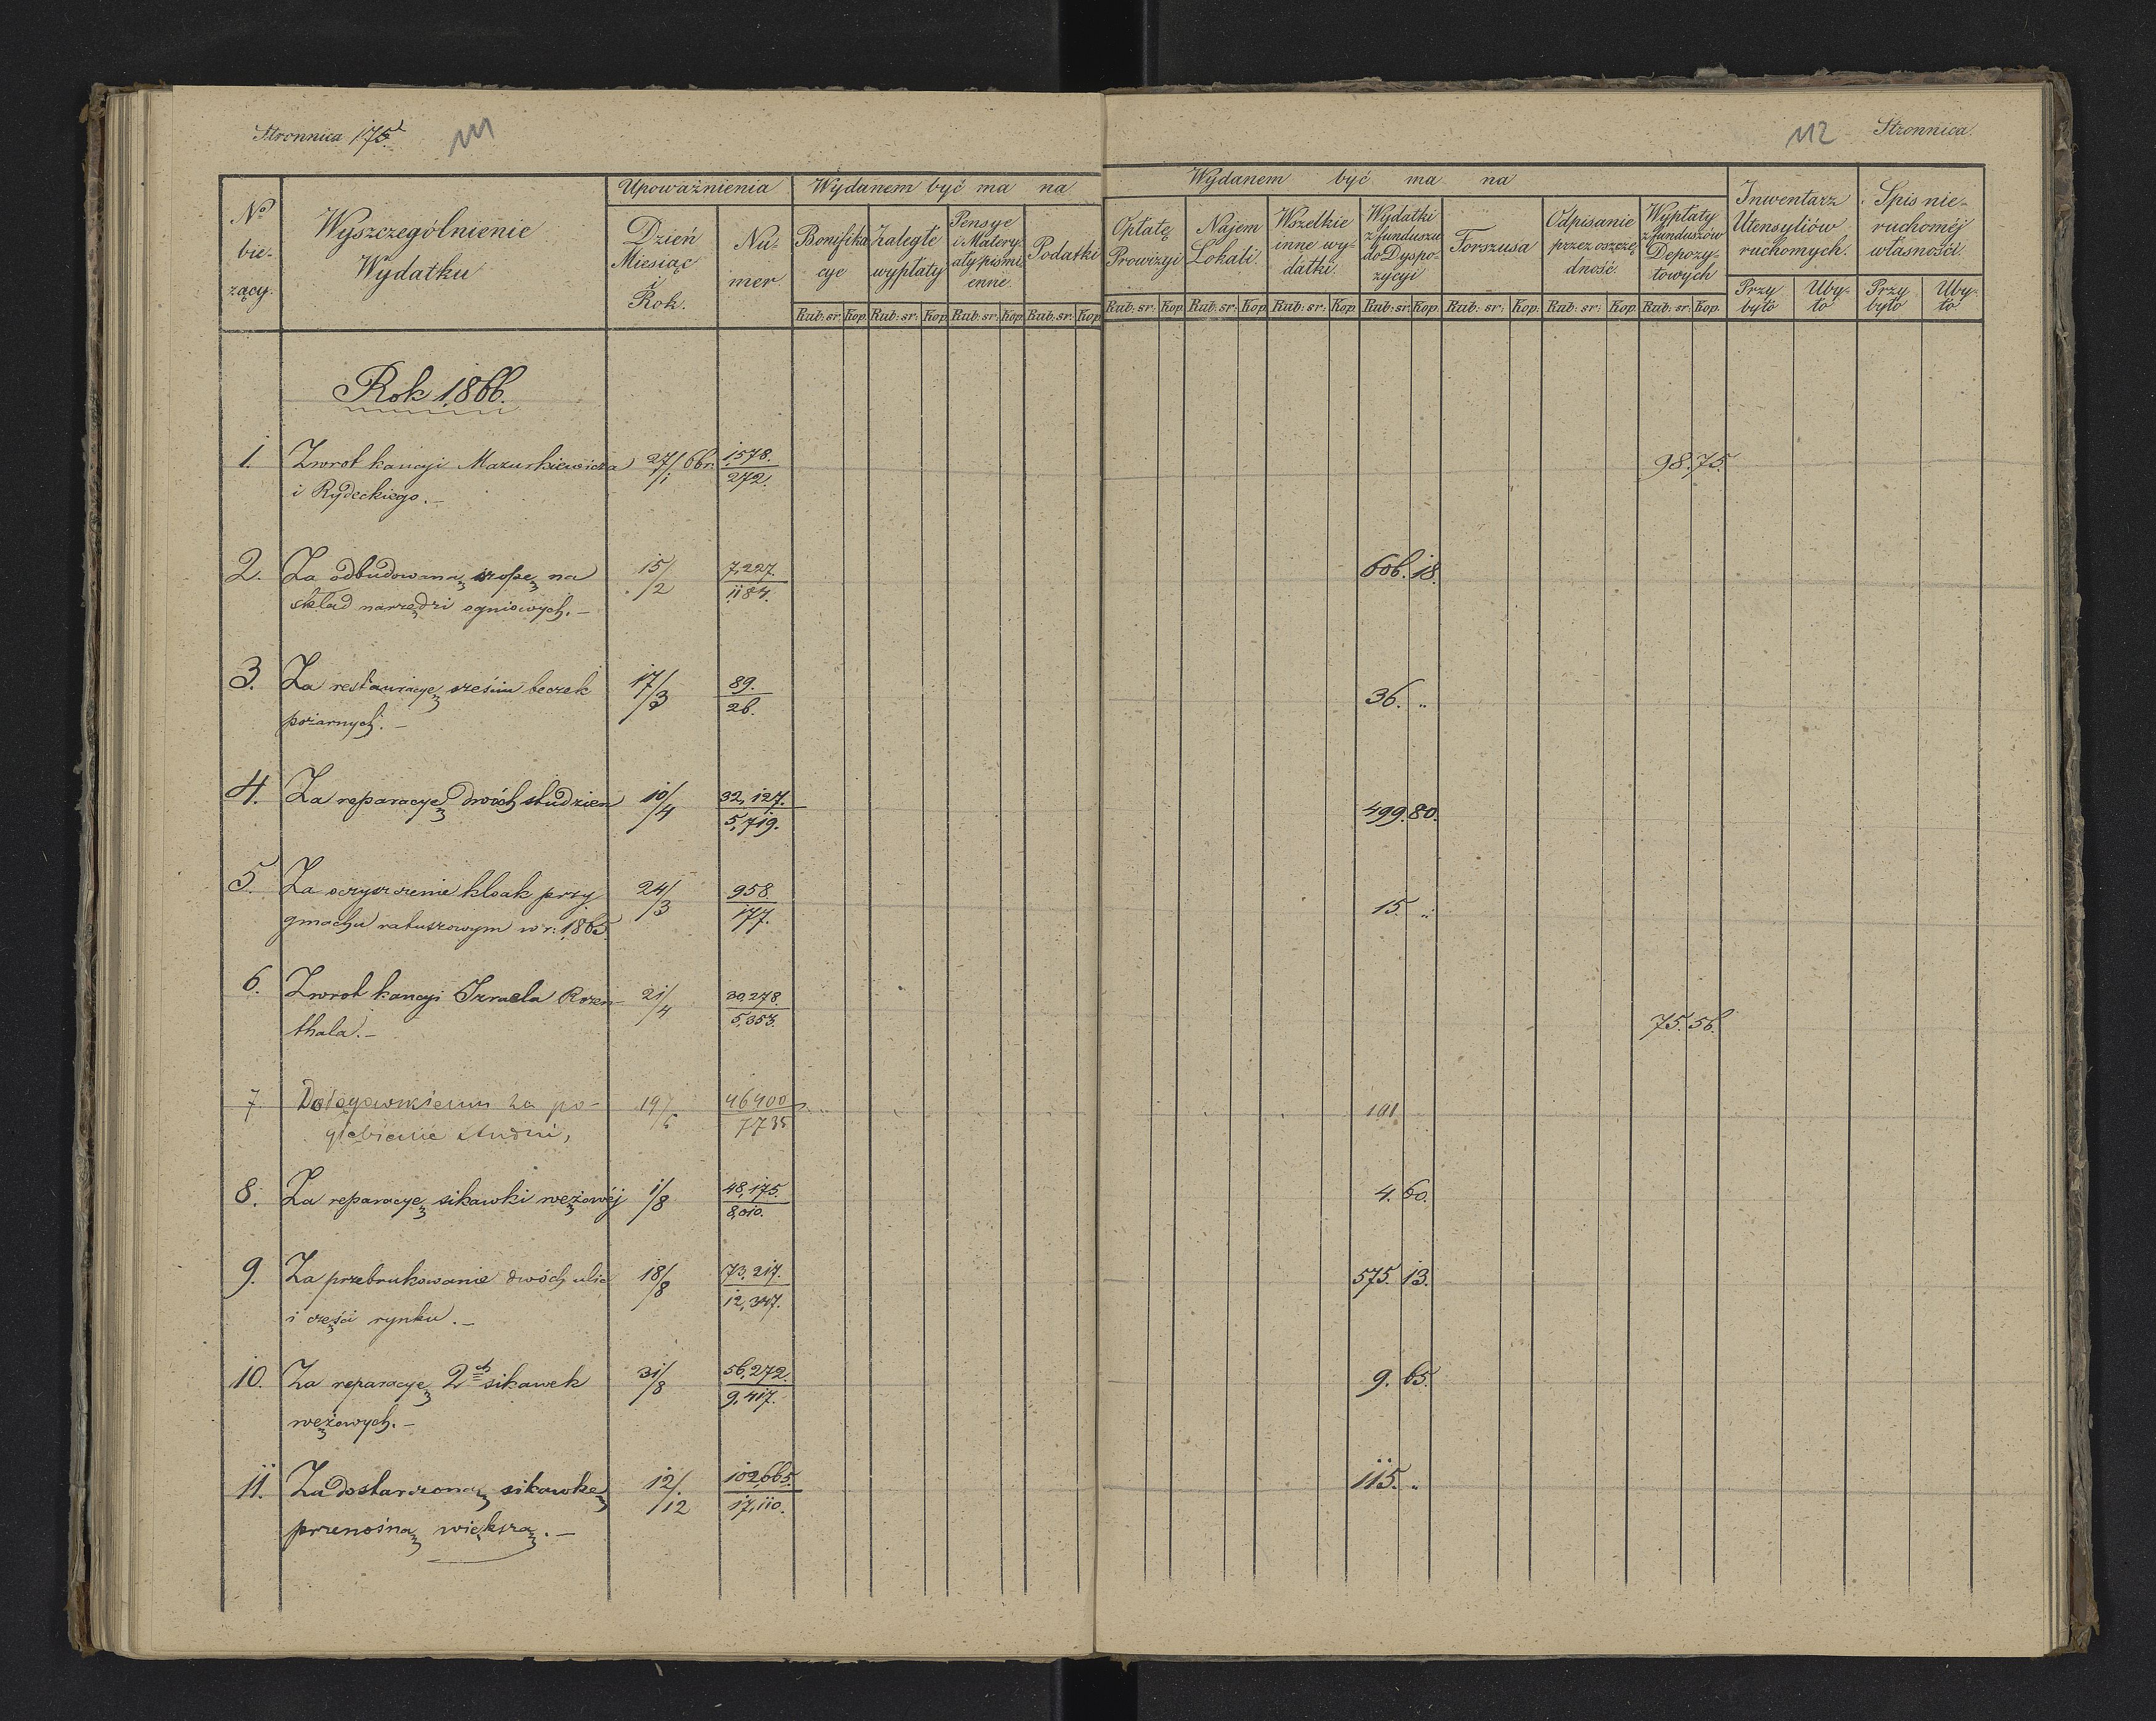 Stronnica 175
111
112 Stronnica.
Upoważnienia Wydanem być ma na Wydanem być ma na
No bieżący.
Wyszczególnienie Wydatku
Dzień Miesiąc i Rok.
Numer.
Bonifikacye
Zaległe wypłaty
Pensye i Materyały piśmienne.
Podatki
Opłatę Prowizyi
Najem Lokali.
Wszelkie inne wydatki.
Wydatki z funduszu do Dyspozycyi
Forszusa
Odpisanie przez oszczędność.
Wypłaty z funduszów Depozytowych
Inwentarz Utensyliów ruchomych.
Spis nieruchoméj własności.
Rub: sr: Kop. Rub: sr: Kop. Rub: sr: Kop. Rub: sr: Kop. Rub: sr: Kop. Rub: sr: Kop. Rub: sr: Kop. Rub: sr: Kop. Rub: sr: Kop. Rub: sr: Kop. Rub: sr: Kop. Przybyło Ubyło Przybyło Ubyło
Rok 1866.
1. Zwrot kaucyi Mazurkiewicza 27/1 66r. 1578./272. 98. 75.
i Rydeckiego.–
2. Za odbudowaną szopę na 15/2 7,227./1184. 606. 18.
skład narzędzi ogniowych.–
3. Za restauracyę sześciu beczek 17/3 89./26. 36. „
pożarnych.–
4. Za reparacyę dwóch studzien 10/4 32,127./5,719. 499. 80.
5. Za oczyszczenie kloak przy 24/3 958/177. 15. „
gmachu ratuszowym w r: 1865.
6. Zwrot kaucyi Izraela Rozen- 21/4 30,278./5,353. 75. 56.
thala.–
7. za po- 19/6 46400/7735 191
głębienie studni,
8. Za reparacyę sikawki wężowéj 1/8 48,175./8,010. 4. 60.
9. Za przebrukowanie dwóch ulic 18/8 73,217./12,347. 575. 13.
i części rynku.–
10. Za reparacyę 2ch sikawek 31/8 56,272./9,417. 9. 65.
wężowych.–
11. Za dostarczoną sikawkę 12/12 102,665./17,110. 115. „
przenośną większą.–